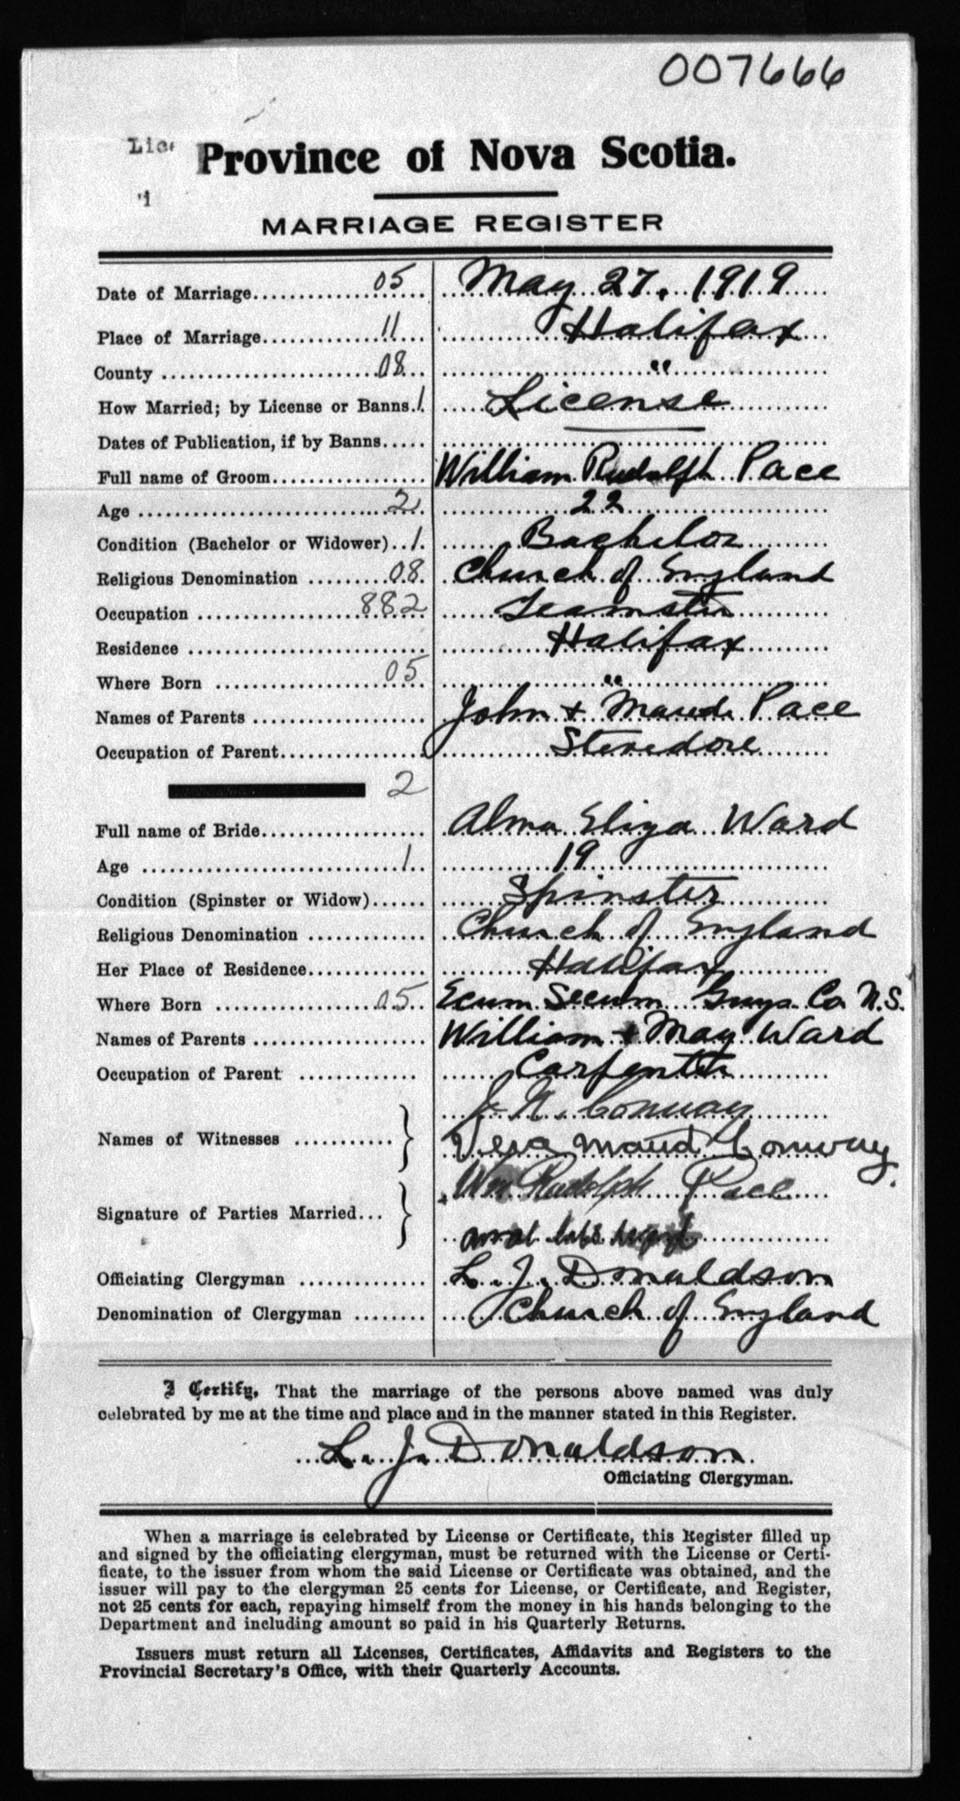 007666
Lice
Province of Nova Scotia.
MARRIAGE REGISTER
Date of Marriage 05 May 27. 1919
Place of Marriage 11 Halifax
County 08 "
How Married; by License or Banns. 1 License
Dates of Publication, if by Banns
Full name of Groom William Rudolph Pace
Age 2 22
Condition (Bachelor or Widower) 1 Bachelor
Religious Denomination 08 Church of England
Occupation 882 Teamster
Residence Halifax
Where Born 05 "
Names of Parents John + Maude Pace
Occupation of Parent Stevedore
2
Full name of Bride Alma Eliza Ward
Age 1 19
Condition (Spinster or Widow) Spinster
Religious Denomination Church of England
Her Place of Residence Halifax
Where Born 05 Ecum Secum Guys. Co N.S.
Names of Parents William + May Ward
Occupation of Parent Carpenter
J. N. Conway
Names of Witnesses Vera Maud Conway.
Wm Rudolph Pace
Signature of Parties Married
Officiating Clergyman L. J. Donaldson
Denomination of Clergyman Church of England
I Certify, That the marriage of the persons above named was duly
celebrated by me at the time and place and in the manner stated in this Register.
L. J. Donaldson
Officiating Clergyman.
When a marriage is celebrated by License or Certificate, this Register filled up
and signed by the officiating clergyman, must be returned with the License or Certi-
ficate, to the issuer from whom the said License or Certificate was obtained, and the
issuer will pay to the clergyman 25 cents for License, or Certificate, and Register,
not 25 cents for each, repaying himself from the money in his hands belonging to the
Department and including amount so paid in his Quarterly Returns.
Issuers must return all Licenses, Certificates, Affidavits and Registers to the
Provincial Secretary's Office, with their Quarterly Accounts.